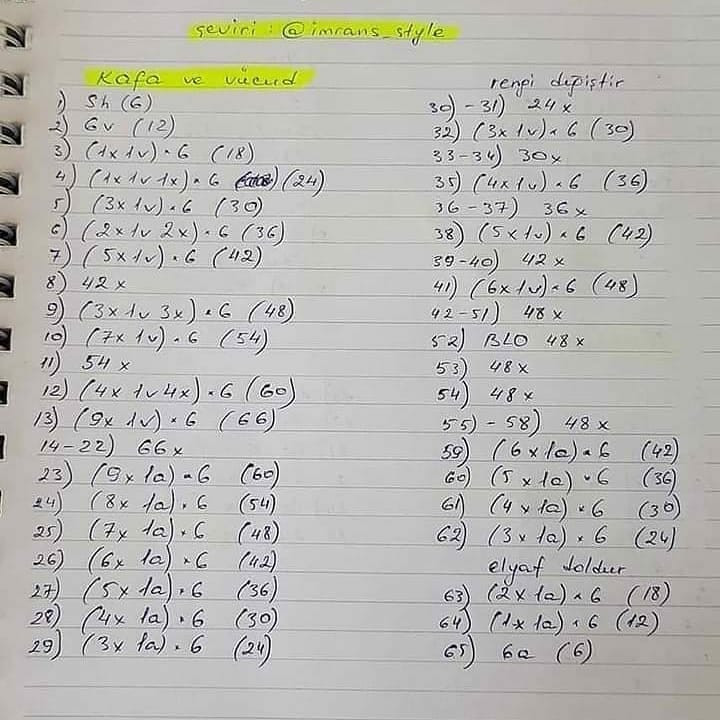 şeviri : @imrans_style
Kafa ve vücud
1) Sh (6)
2) 6v (12)
3) (1x 1v) * 6 (18)
4) (1x 1v 1x) * 6 (24)
5) (3x 1v) * 6 (30)
6) (2x 1v 2x) * 6 (36)
7) (5x 1v) * 6 (42)
8) 42 x
9) (3x 1v 3x) * 6 (48)
10) (7x 1v) * 6 (54)
11) 54 x
12) (4x 1v 4x) * 6 (60)
13) (9x 1v) * 6 (66)
14-22) 66x
23) (9x 1a) * 6 (60)
24) (8x 1a) * 6 (54)
25) (7x 1a) * 6 (48)
26) (6x 1a) * 6 (42)
27) (5x 1a) * 6 (36)
28) (4x 1a) * 6 (30)
29) (3x 1a) * 6 (24)
rengi değiştir
30) - 31) 24x
32) (3x 1v) * 6 (30)
33-34) 30x
35) (4x 1v) * 6 (36)
36-37) 36x
38) (5x 1v) * 6 (42)
39-40) 42x
41) (6x 1v) * 6 (48)
42-51) 48x
52) BLO 48x
53) 48x
54) 48x
55) - 58) 48x
59) (6x 1a) * 6 (42)
60) (5x 1a) * 6 (36)
61) (4x 1a) * 6 (30)
62) (3x 1a) * 6 (24)
elyaf doldur
63) (2x 1a) * 6 (18)
64) (1x 1a) * 6 (12)
65) 6a (6)